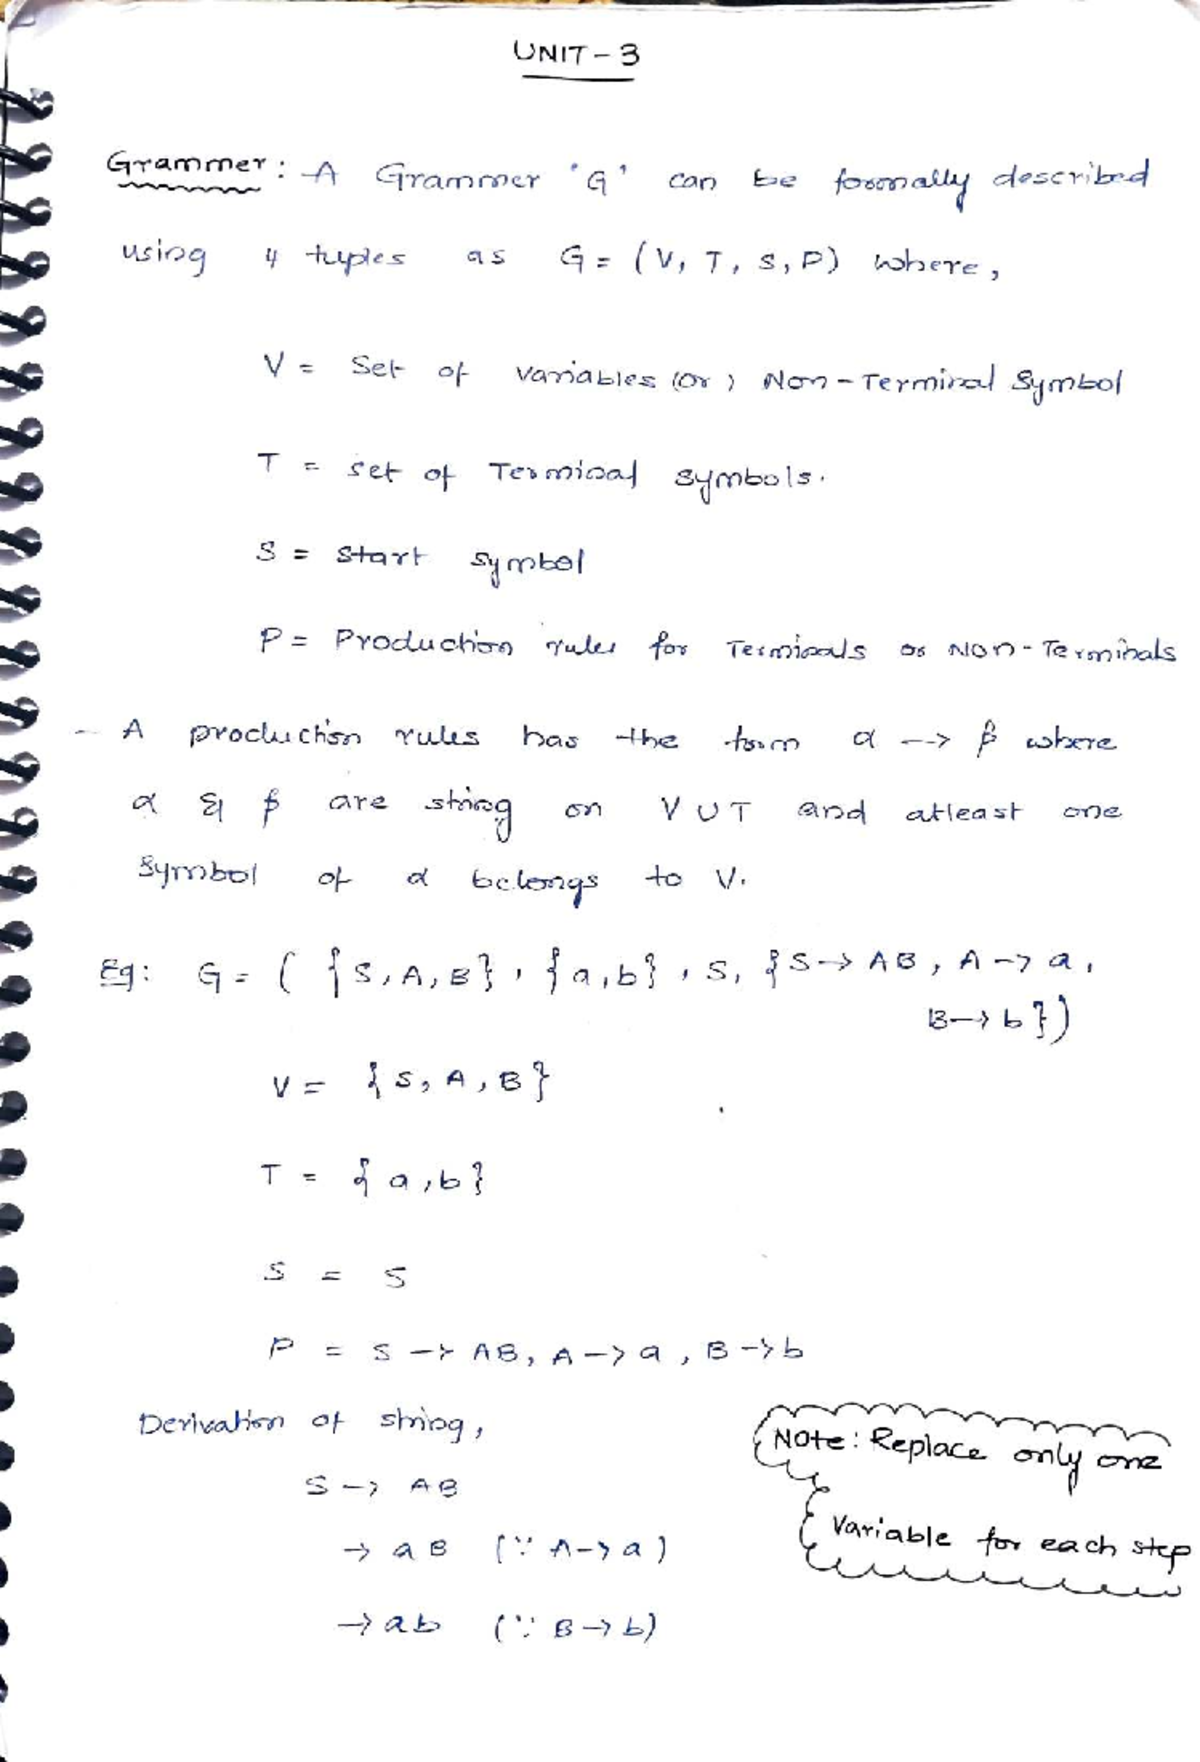 UNIT-3
Grammer: A Grammer 'G' can be formally described
using 4 tuples as G = (V, T, S, P) where,
V = Set of variables (or) Non-Terminal Symbol
T = set of Terminal symbols.
S = Start symbol
P = Production rules for Terminals or Non-Terminals
- A production rules has the form α --> β where
α & β are string on V U T and atleast one
Symbol of α belongs to V.
Eg: G = ( {S, A, B}, {a, b}, S, {S → AB, A → a,
B → b})
V = {S, A, B}
T = {a, b}
S = S
P = S → AB, A → a, B → b
Derivation of string,
S → AB
→ aB (∵ A → a)
→ ab (∵ B → b)
Note: Replace only one
Variable for each step